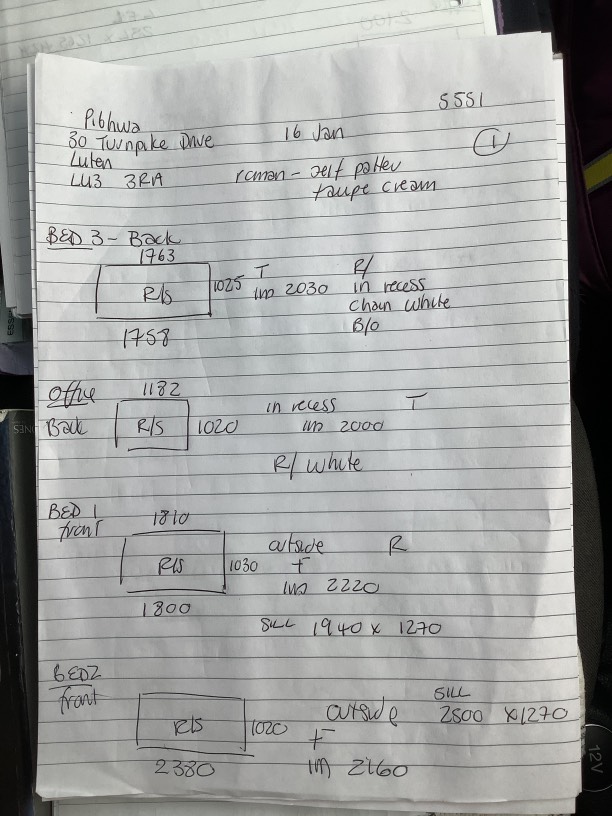 5551
Pibhwa
30 Turnpike Drive
16 Jan
1
Luton
LU3 3RA
roman - self patter
taupe cream
BED 3 - Back
1763
R/S
1025
T
2030
R/
in recess
chain white
B/O
1758
Office
Back
1182
R/S
1020
in recess
T
2000
R/ white
BED 1
front
1810
R/S
1030
outside
R
T
2220
1800
SILL 1940 x 1270
BED2
front
R/S
1020
outside
SILL
2500 x1270
2380
2160
12V